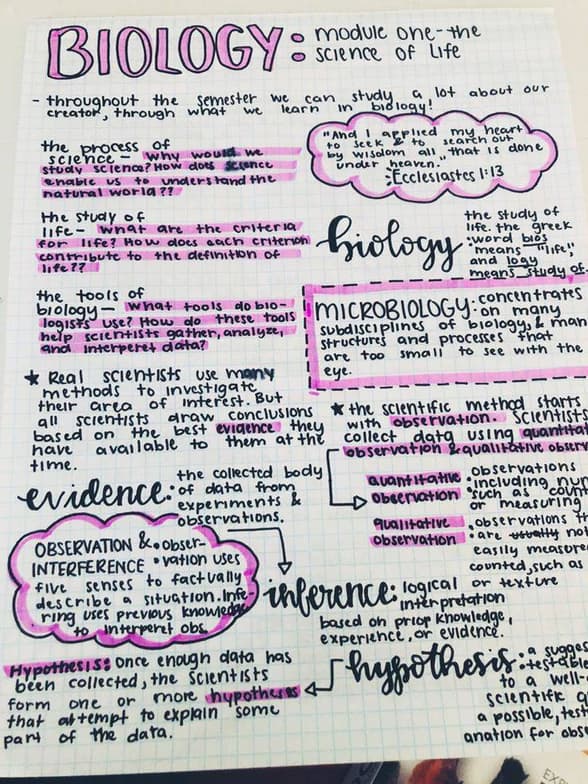 BIOLOGY: module one- the
science of life
- throughout the semester we can study a lot about our
creator, through what we learn in biology!
the process of
science - why would we
study science? How does science
enable us to understand the
natural world??
"And I applied my heart
to seek & to search out
by wisdom all that is done
under heaven."
Ecclesiastes 1:13
the study of
life - what are the criteria
for life? How does each criterion
contribute to the definition of
life??
biology: the study of
life. the greek
word bios
means "life",
and logy
means study of
the tools of
biology - what tools do bio-
logists use? How do these tools
help scientists gather, analyze,
and interperet data?
MICROBIOLOGY: concentrates
on many
subdisciplines of biology, & man
structures and processes that
are too small to see with the
eye.
★ Real scientists use many
methods to investigate
their area of interest. But
all scientists draw conclusions
based on the best evidence they
have available to them at the
time.
★ the scientific method starts
with observation. Scientists
collect data using quantitat
observation & qualitative observ
evidence: the collected body
of data from
experiments &
observations.
quantitative
observation: observations
including num
such as count
or measuring
qualitative
observation: observations th
are usually not
easily measure
counted, such as
or texture
OBSERVATION &
INTERFERENCE • obser-
vation uses
five senses to factually
describe a situation. Infe-
ring uses previous knowledge
to interperet obs.
inference: logical
interpretation
based on prior knowledge,
experience, or evidence.
Hypothesis: Once enough data has
been collected, the scientists
form one or more hypotheses
that attempt to explain some
part of the data.
hypothesis: a sugges
testable
to a well-
scientific q
a possible, test
anation for obse